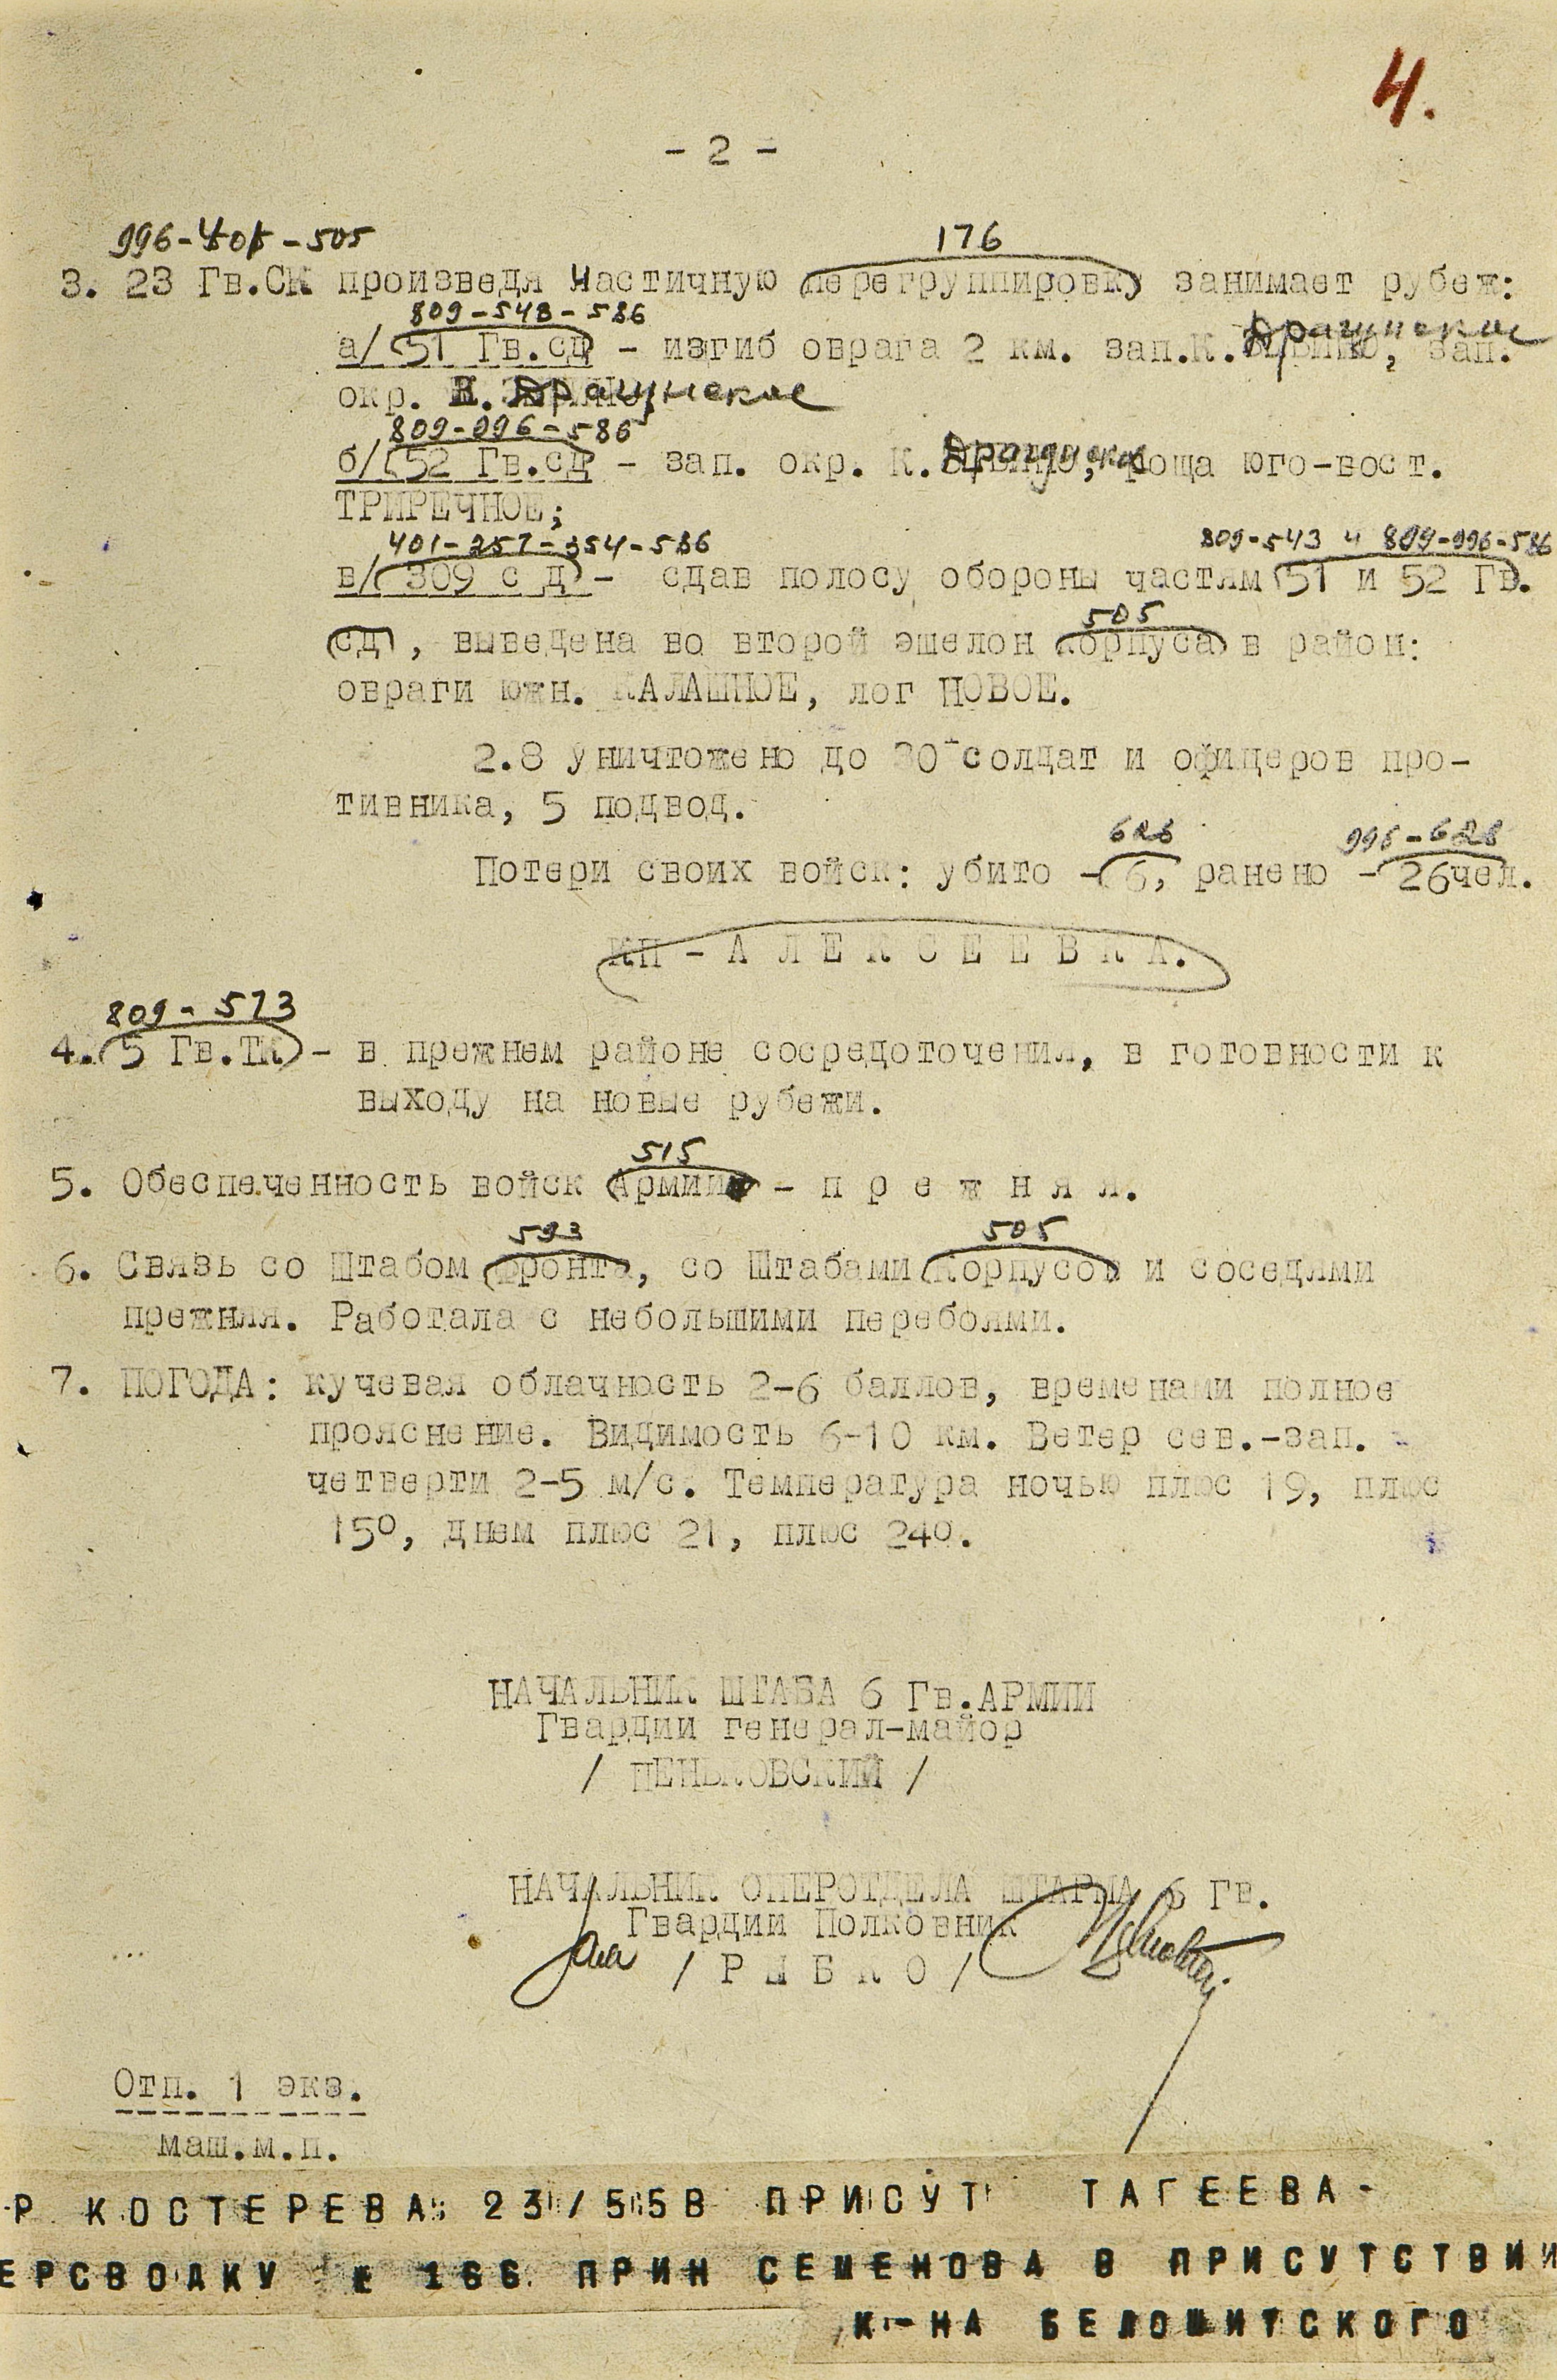 4.
- 2 -
996-405-505
176
3. 23 Гв.СК произведя частичную перегруппировку занимает рубеж:
809-543-586
а/ 51 Гв.сд - изгиб оврага 2 км. зап.К. Драгунское, зап.
окр. Драгунское
809-996-586
б/ 52 Гв.сд - зап. окр. К. Драгунское, роща юго-вост.
ТРИРЕЧНОЕ;
401-257-354-586 809-543 и 809-996-586
в/ 309 с д - сдав полосу обороны частям 51 и 52 Гв.
505
сд, выведена во второй эшелон корпуса в район:
овраги южн. КАЛАШНОЕ, лог НОВОЕ.
2.8 уничтожено до 30 солдат и офицеров про-
тивника, 5 подвод.
628 996-628
Потери своих войск: убито - 6, ранено - 26чел.
КП - А Л Е К С Е Е В К А.
809-573
4. 5 Гв.ТК - в прежнем районе сосредоточения, в готовности к
выходу на новые рубежи.
515
5. Обеспеченность войск Армии - п р е ж н я я.
593 505
6. Связь со Штабом фронта, со Штабами корпусов и соседями
прежняя. Работала с небольшими перебоями.
7. ПОГОДА: кучевая облачность 2-6 баллов, временами полное
прояснение. Видимость 6-10 км. Ветер сев.-зап.
четверти 2-5 м/с. Температура ночью плюс 19, плюс
15°, днем плюс 21, плюс 24°.
НАЧАЛЬНИК ШТАБА 6 Гв.АРМИИ
Гвардии генерал-майор
/ ПЕНЬКОВСКИЙ /
НАЧАЛЬНИК ОПЕРОТДЕЛА ШТАРМА 6 Гв.
Гвардии Полковник
/ Р Ы Б К О /
Отп. 1 экз.
маш.м.п.
-Р КОСТЕРЕВА 23/55В ПРИСУТ ТАГЕЕВА-
ЕРСВОДКУ 166 ПРИН СЕМЕНОВА В ПРИСУТСТВИИ
К-НА БЕЛОШИТСКОГО